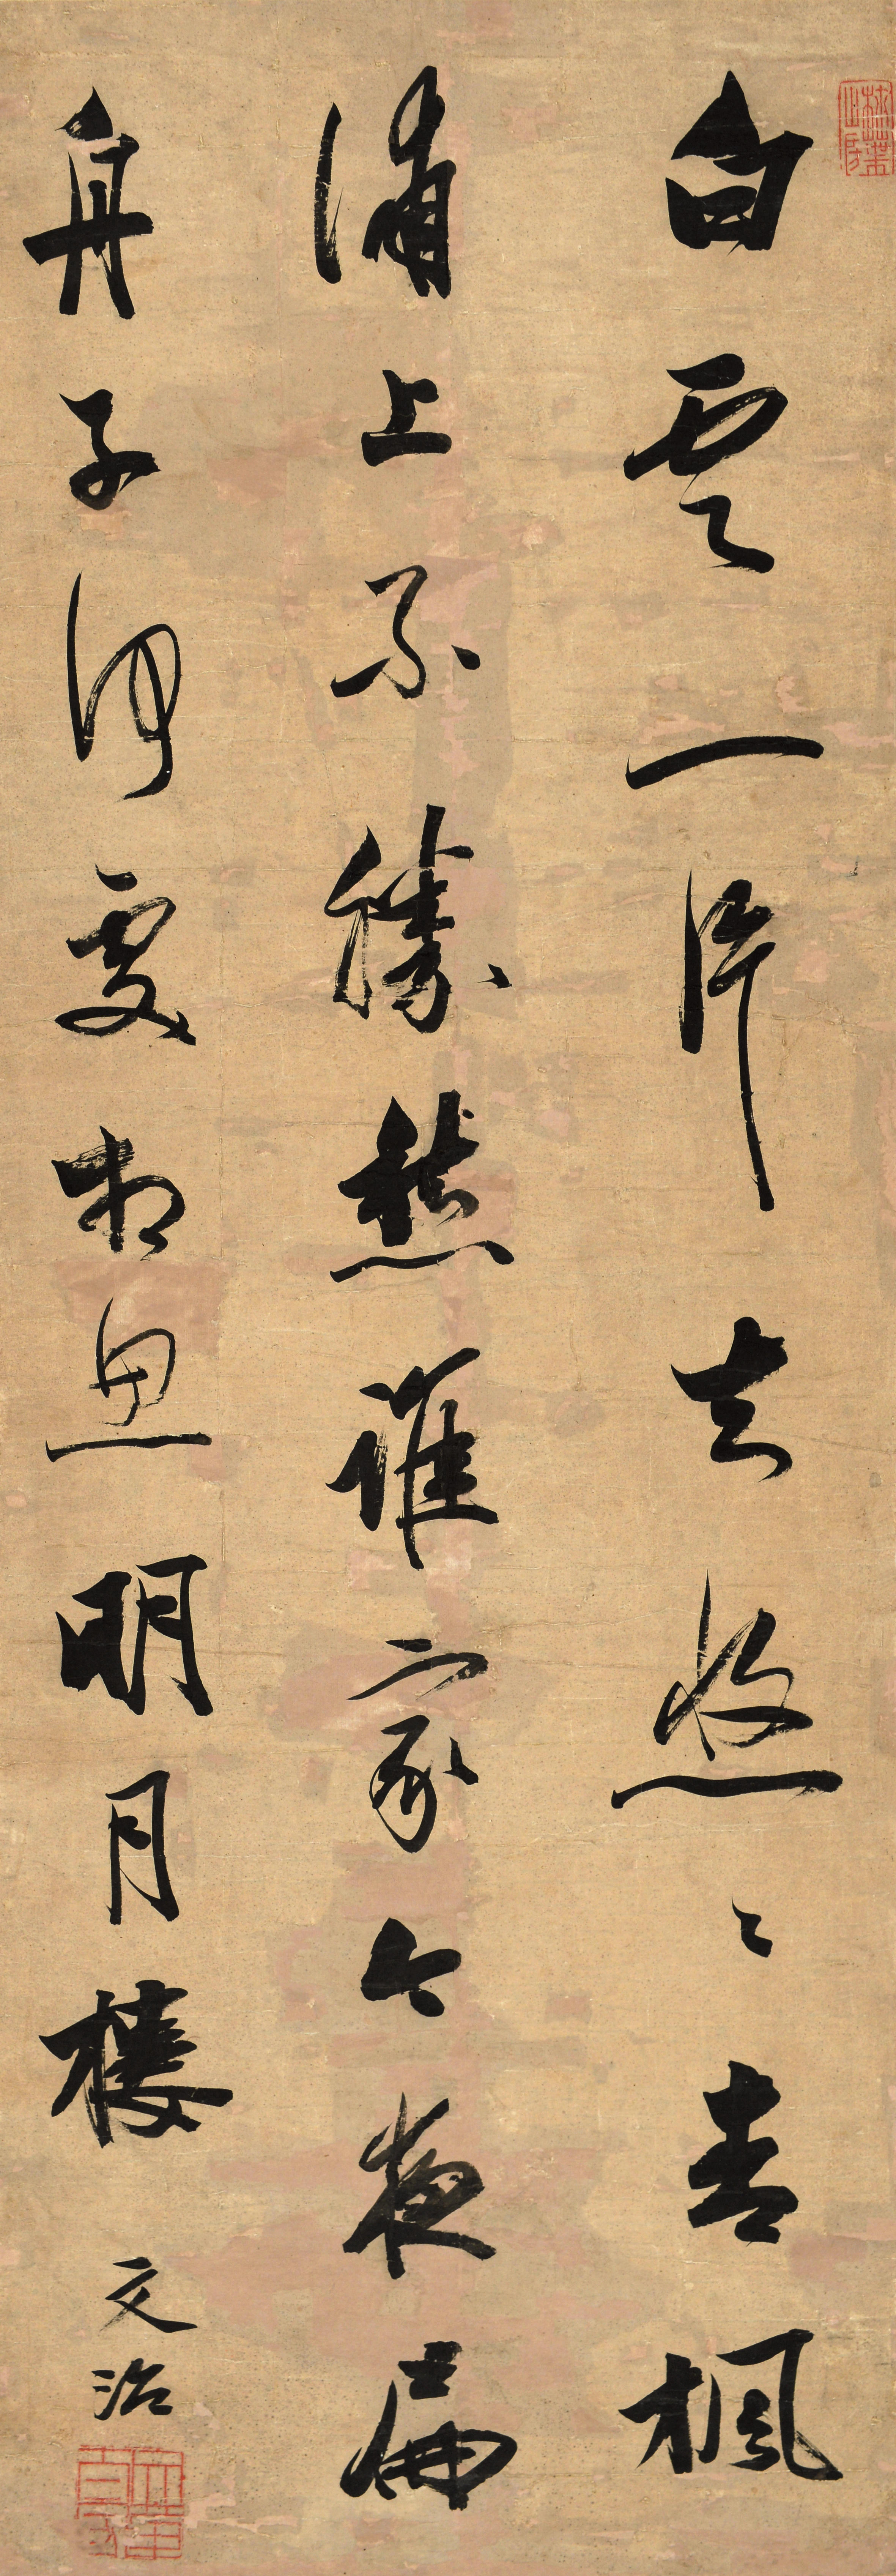 白雲一片去悠〻青楓
浦上不勝愁誰家今夜扁
舟子何處相思明月樓
文治